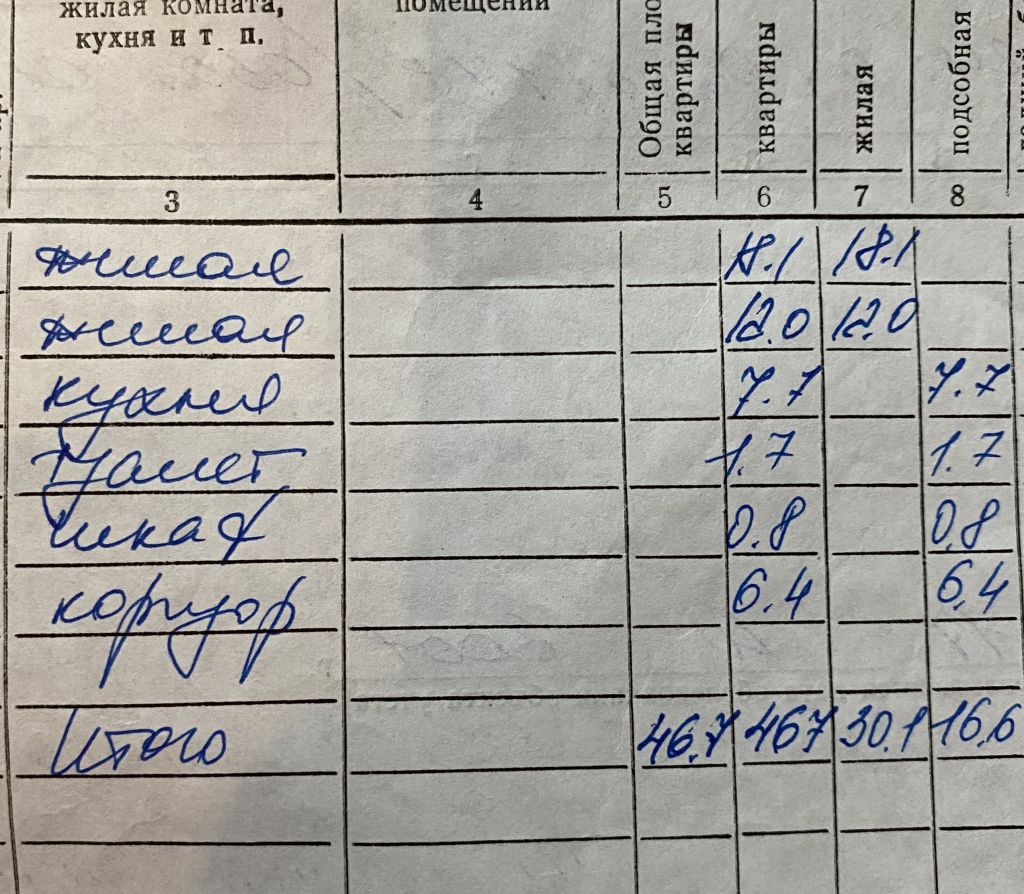 жилая комната,
кухня и т. п.
помещений
Общая
квартиры
квартиры
жилая
подсобная
3 4 5 6 7 8
жилая 18.1 18.1
жилая 12.0 12.0
кухня 7.7 7.7
туалет 1.7 1.7
шкаф 0.8 0.8
коридор 6.4 6.4
Итого 46.7 46.7 30.1 16.6